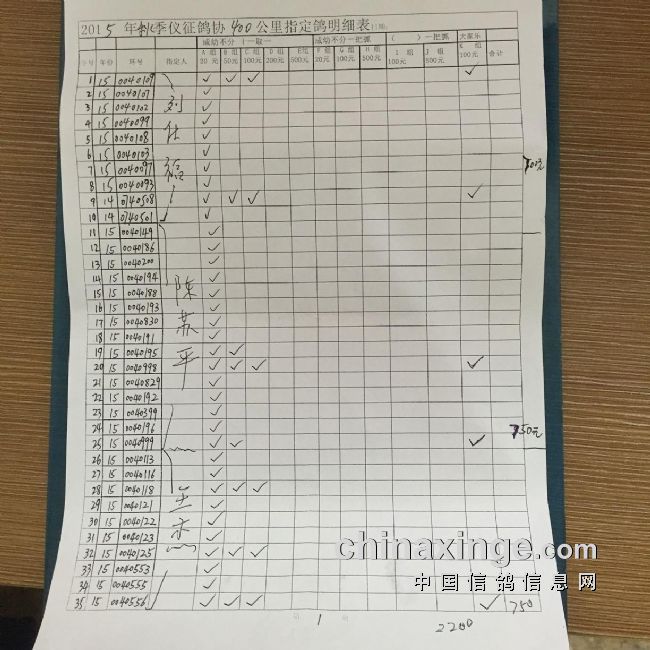 2015 年秋季仪征鸽协 400 公里指定鸽明细表
成幼不分 ( 一取一 成幼不分一把抓 ( ) 一把抓 大家乐
序号 年份 环号 指定人 A 组 20 元 B 组 50元 C 组 100元 D 组 200 元 E组 500元 F 组 20 元 G 组 100元 H 组 500元 I 组 100元 J 组 500元 K 组 100 元 合计
1 15 0040109 ✓ ✓ ✓ ✓
2 15 0040107 ✓
3 15 0040102 ✓
4 15 0040099 ✓
5 15 0040108 ✓
6 15 0040103 ✓
7 15 0040097 ✓ 700元
8 15 0040093 ✓
9 14 0740508 ✓ ✓ ✓ ✓
10 14 0740501 ✓
11 15 0040149 ✓
12 15 0040186 ✓
13 15 0040200 ✓
14 15 0040194 陈 ✓
15 15 0040188 ✓
16 15 0040193 苏 ✓
17 15 0040830 ✓
18 15 0040191 平 ✓
19 15 0040195 ✓ ✓
20 15 0040998 ✓ ✓ ✓ ✓
21 15 0040829 ✓
22 15 0040192 ✓
23 15 0040399 ✓
24 15 0040196 ✓ 750元
25 15 0040999 ✓ ✓ ✓
26 15 0040113 ✓
27 15 0040116 ✓
28 15 0040118 ✓ ✓ ✓
29 15 0040121 ✓
30 15 0040122 ✓
31 15 0040123 ✓
32 15 0040125 ✓ ✓ ✓
33 15 0040553 ✓
34 15 0040555 ✓
35 15 0040556 ✓ ✓ ✓ ✓ 750
1
2200
chinaxinge.com
中国信鸽信息网